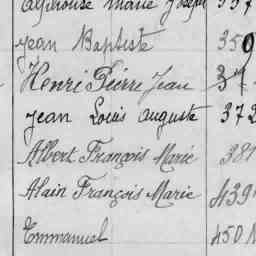 Alphonse Marie Joseph 337
Jean Baptiste 350
Henri Pierre Jean 37
Jean Louis Auguste 372
Albert François Marie 381
Alain François Marie 439
Emmanuel 450